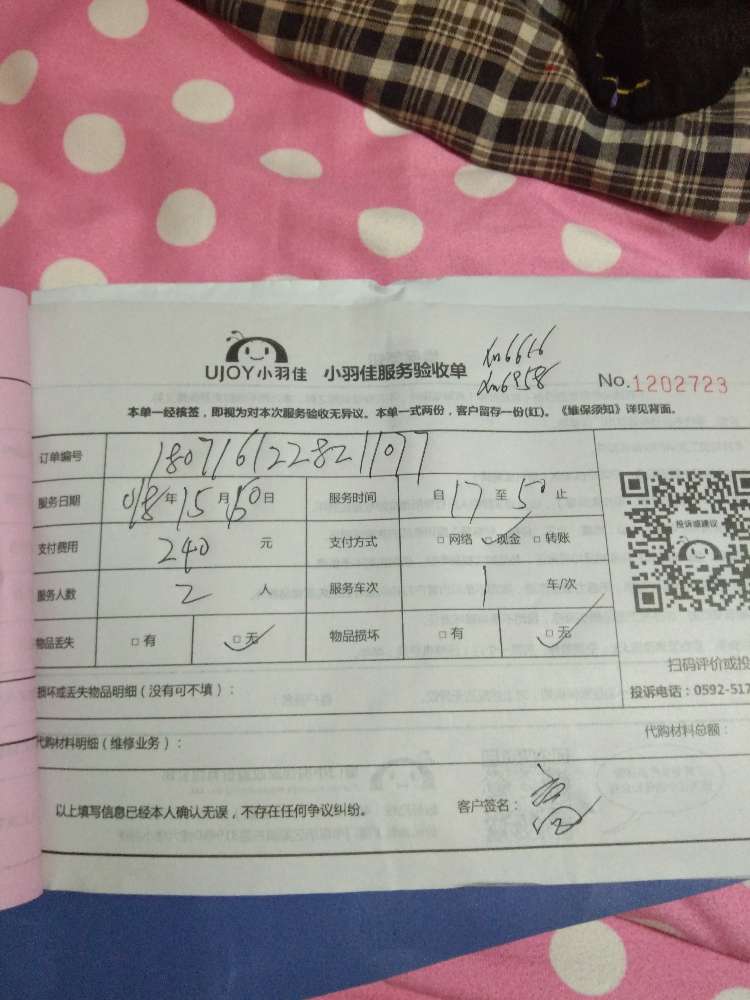 UJOY小羽佳 小羽佳服务验收单 No.1202723
本单一经核签，即视为对本次服务验收无异议。本单一式两份，客户留存一份(红)。《维保须知》详见背面。
订单编号 180716122821077
服务日期 018年15月 日 服务时间 自17至 止
支付费用 240元 支付方式 □网络 □现金 □转账
服务人数 2人 服务车次 1车/次
物品丢失 □有 □无 物品损坏 □有 □无
投诉或建议
扫码评价或投
损坏或丢失物品明细（没有可不填）： 投诉电话：0592-517
代购材料明细（维修业务）： 代购材料总额：
以上填写信息已经本人确认无误，不存在任何争议纠纷。 客户签名：